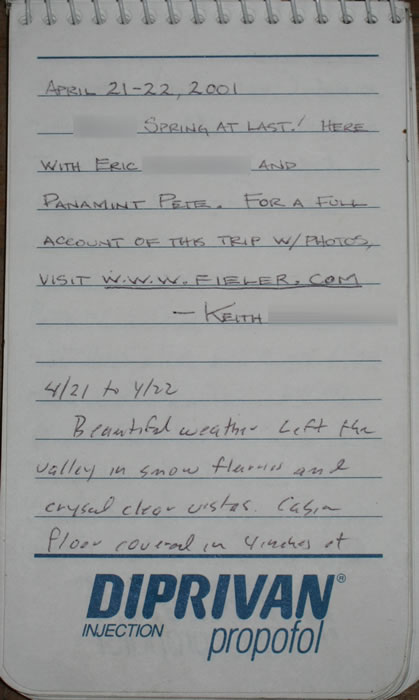 APRIL 21-22, 2001
SPRING AT LAST! HERE
WITH ERIC AND
PANAMINT PETE. FOR A FULL
ACCOUNT OF THIS TRIP W/ PHOTOS,
VISIT W.W.W.FIELER.COM
— KEITH
4/21 to 4/22
Beautiful weather Left the
valley in snow flurries and
crysal clear vistas. Cabin
floor covered in 4 inches of
DIPRIVAN®
INJECTION propofol